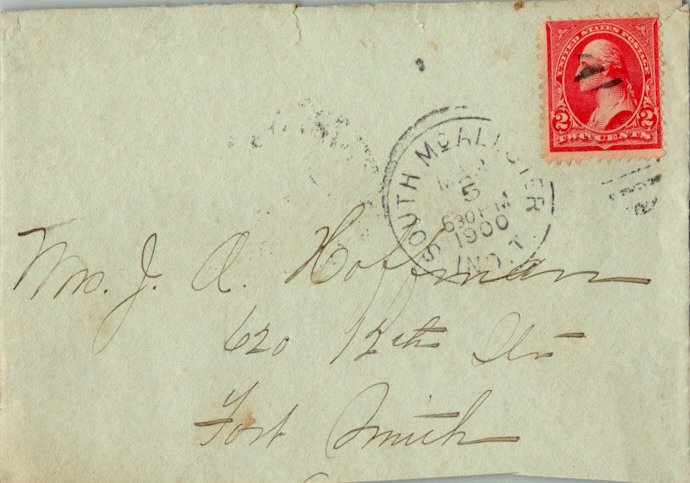 UNITED STATES POSTAGE
2 2
TWO CENTS
SOUTH McALESTER
MAR
5
630PM
1900
IND. T.
Mrs. J. A. Hoffman
620 12th Str
Fort Smith